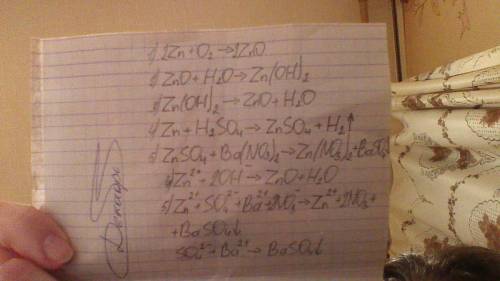 1) 2Zn + O₂ → 2ZnO
2) ZnO + H₂O → Zn(OH)₂
3) Zn(OH)₂ → ZnO + H₂O
4) Zn + H₂SO₄ → ZnSO₄ + H₂↑
5) ZnSO₄ + Ba(NO₃)₂ → Zn(NO₃)₂ + BaSO₄
Zn²⁺ + 2OH⁻ → ZnO + H₂O
5) Zn²⁺ + SO₄²⁻ + Ba²⁺ + 2NO₃⁻ → Zn²⁺ + 2NO₃⁻ +
+ BaSO₄↓
SO₄²⁻ + Ba²⁺ → BaSO₄↓